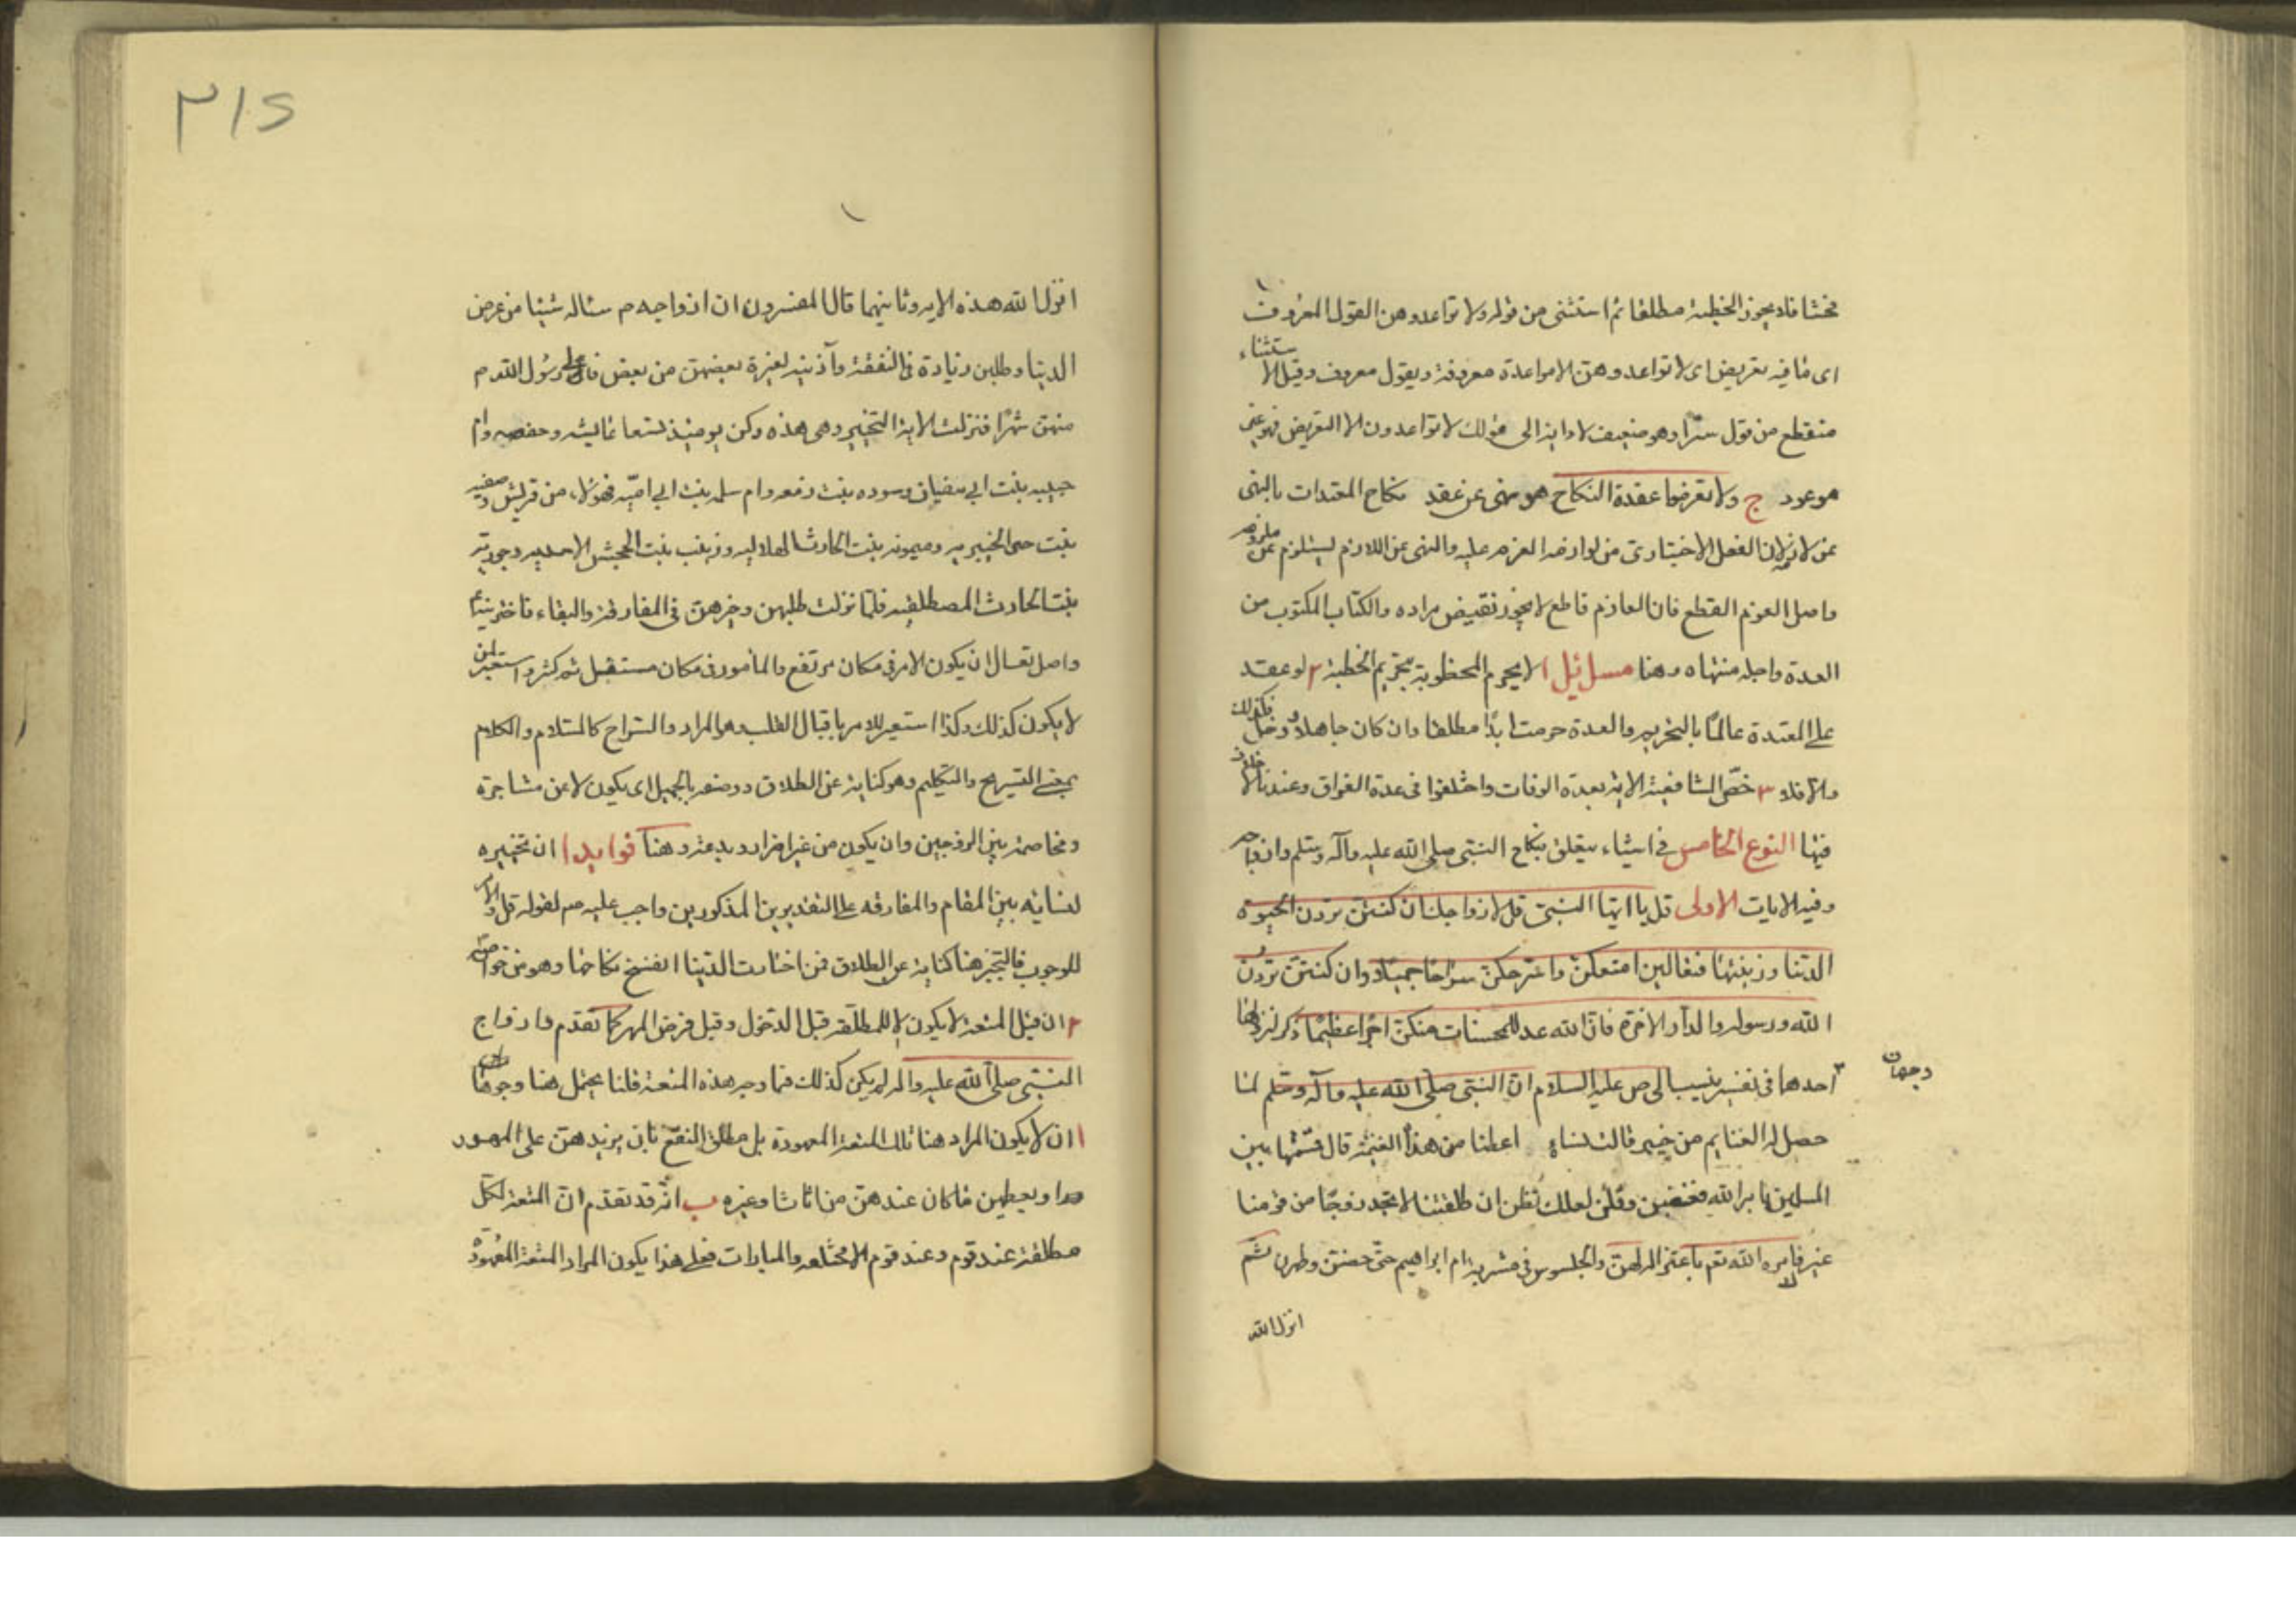 فحشا فلا يجوز الخطبة مطلقا ثم استثنى من قوله ولا تواعدوهن القول المعروف
اى ما فيه تعريض اى لا تواعدوهن الا مواعدة معروفة وبقول معروف وقيل الاستثناء
منقطع من قول سرّا وهو ضعيف لادايه الى قولك لا تواعدون الا التعريض فهو غير
موعود ج ولا تعزموا عقدة النكاح هو نهى عن عقد نكاح المعتدات بالنهى
عن لازمه لان الفعل الاختيارى من لوازمه العزم عليه والنهى عن اللازم يستلزم عن ملزومه
واصل العزم القطع فان العازم قاطع لا يجوز نقيض مراده والكتاب المكتوب من
العدة واجله منتهاه وهنا مسائل ١ لا يحرم المخطوبة بتحريم الخطبة ٢ لو عقد
على المعتدة عالما بالتحريم والعدة حرمت ابدًا مطلقا وان كان جاهلا ودخل فكذلك
والا فلا ٣ خصّ الشافعية الاية بعدة الوفات واختلفوا فى عدة الفراق وعندنا لا خلاف
فيها النوع الخامس فى اشياء يتعلق بنكاح النبى صلى الله عليه وآله وسلم وازواجه
وفيه الايات الاولى قل يا ايها النبى قل لازواجك ان كنتن تردن الحيوة
الدنيا وزينتها فتعالين امتعكن واسرحكن سراحا جميلا وان كنتن تردن
الله ورسوله والدار الاخرة فان الله عد للمحسنات منكن اجرا عظيمًا ذكر لنزولها
وجهان
احدهما فى تفسير ينسب الى ص عليه السلام ان النبى صلى الله عليه وآله وسلم لما
حصل له الغنايم من خيبر قالت نساؤه اعطنا من هذه الغنيمة قال قسّمتها بين
المسلمين بامر الله فغضبن وقلن لعلك تظن ان طلقتنا لا نجد زوجًا من قومنا
غير فامره الله تعم باعتزالهن والجلوس فى مشربة ام ابراهيم حتى حضن وطهرن ثم
انزل الله
٣١٥
انزل الله هذه الاية وثانيهما قال المفسرون ان ازواجه م سئاله شيئا من عرض
الدنيا وطلبن زيادة فى النفقة وآذنيه لغيرة بعضهن من بعض فالى رسول الله م
منهن شهرًا فنزلت الاية التخيير وهى هذه وكن يومئذ تسعا عايشه وحفصه وام
حبيبه بنت ابى سفيان وسوده بنت زمعه وام سلمه بنت ابى اميّه فهؤلاء من قريش وصفيه
بنت حى الخيبريه وميمونه بنت الحارث الهلاليه وزينب بنت الجحش الاسديه وجويريه
بنت الحارث المصطلقيه فلمّا نزلت طلبهن وخيرهن فى المفارقة والبقاء فاخترنه
واصل تعال ان يكون الامر فى مكان مرتفع والمأمور فى مكان مستفل ثم كثر واستعير لمن
لا يكون كذلك وكذا استعير للامر باقبال القلب وهو المراد والسراح كالسلام والكلام
بمعنى التسريح والتكليم وهو كناية عن الطلاق ووصفه بالجميل اى يكون لا عن مشاجرة
ومخاصمة بين الزوجين وان يكون من غير اضرار وبدعة وهنا فوايد ١ ان تخييره
لنسائه بين المقام والمفارقه على التقديرين المذكورين واجب عليه صم لقوله قل والامر
للوجوب فالتخيير هنا كناية عن الطلاق فمن اختارت الدنيا انفسخ نكاحها وهو من خواصه
٢ ان قيل المتعة لا يكون الا للمطلقه قبل الدخول وقبل فرض المهر كما تقدم وازواج
النبى صلى الله عليه واله لم يكن كذلك فما وجه هذه المتعة قلنا يحتمل هنا وجوها
١ ان لا يكون المراد هنا تلك المتعة المعهودة بل مطلق النفع بان يزيدهن على المهور
او يعطين ما كان عندهن من اثاث وغيره ب انه قد تقدم ان المتعة لكل
مطلقة عند قوم وعند قوم الا المختلعه والمبارات فعلى هذا يكون المراد المتعة المعهودة